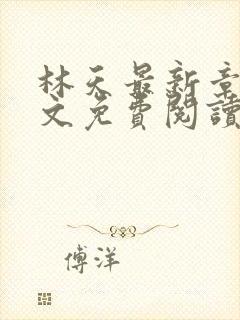 林天最新章
文免費閱讀
傅洋